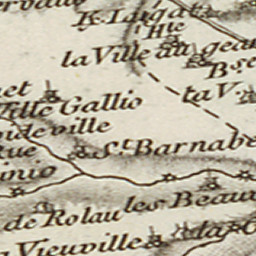 K. Laigat
Hte
la Ville au gean
Bse
la V.
Ville Gallio
oide ville
Rue
St. Barnabe
mio
de Rolau
les Beaux
Vieuville
la